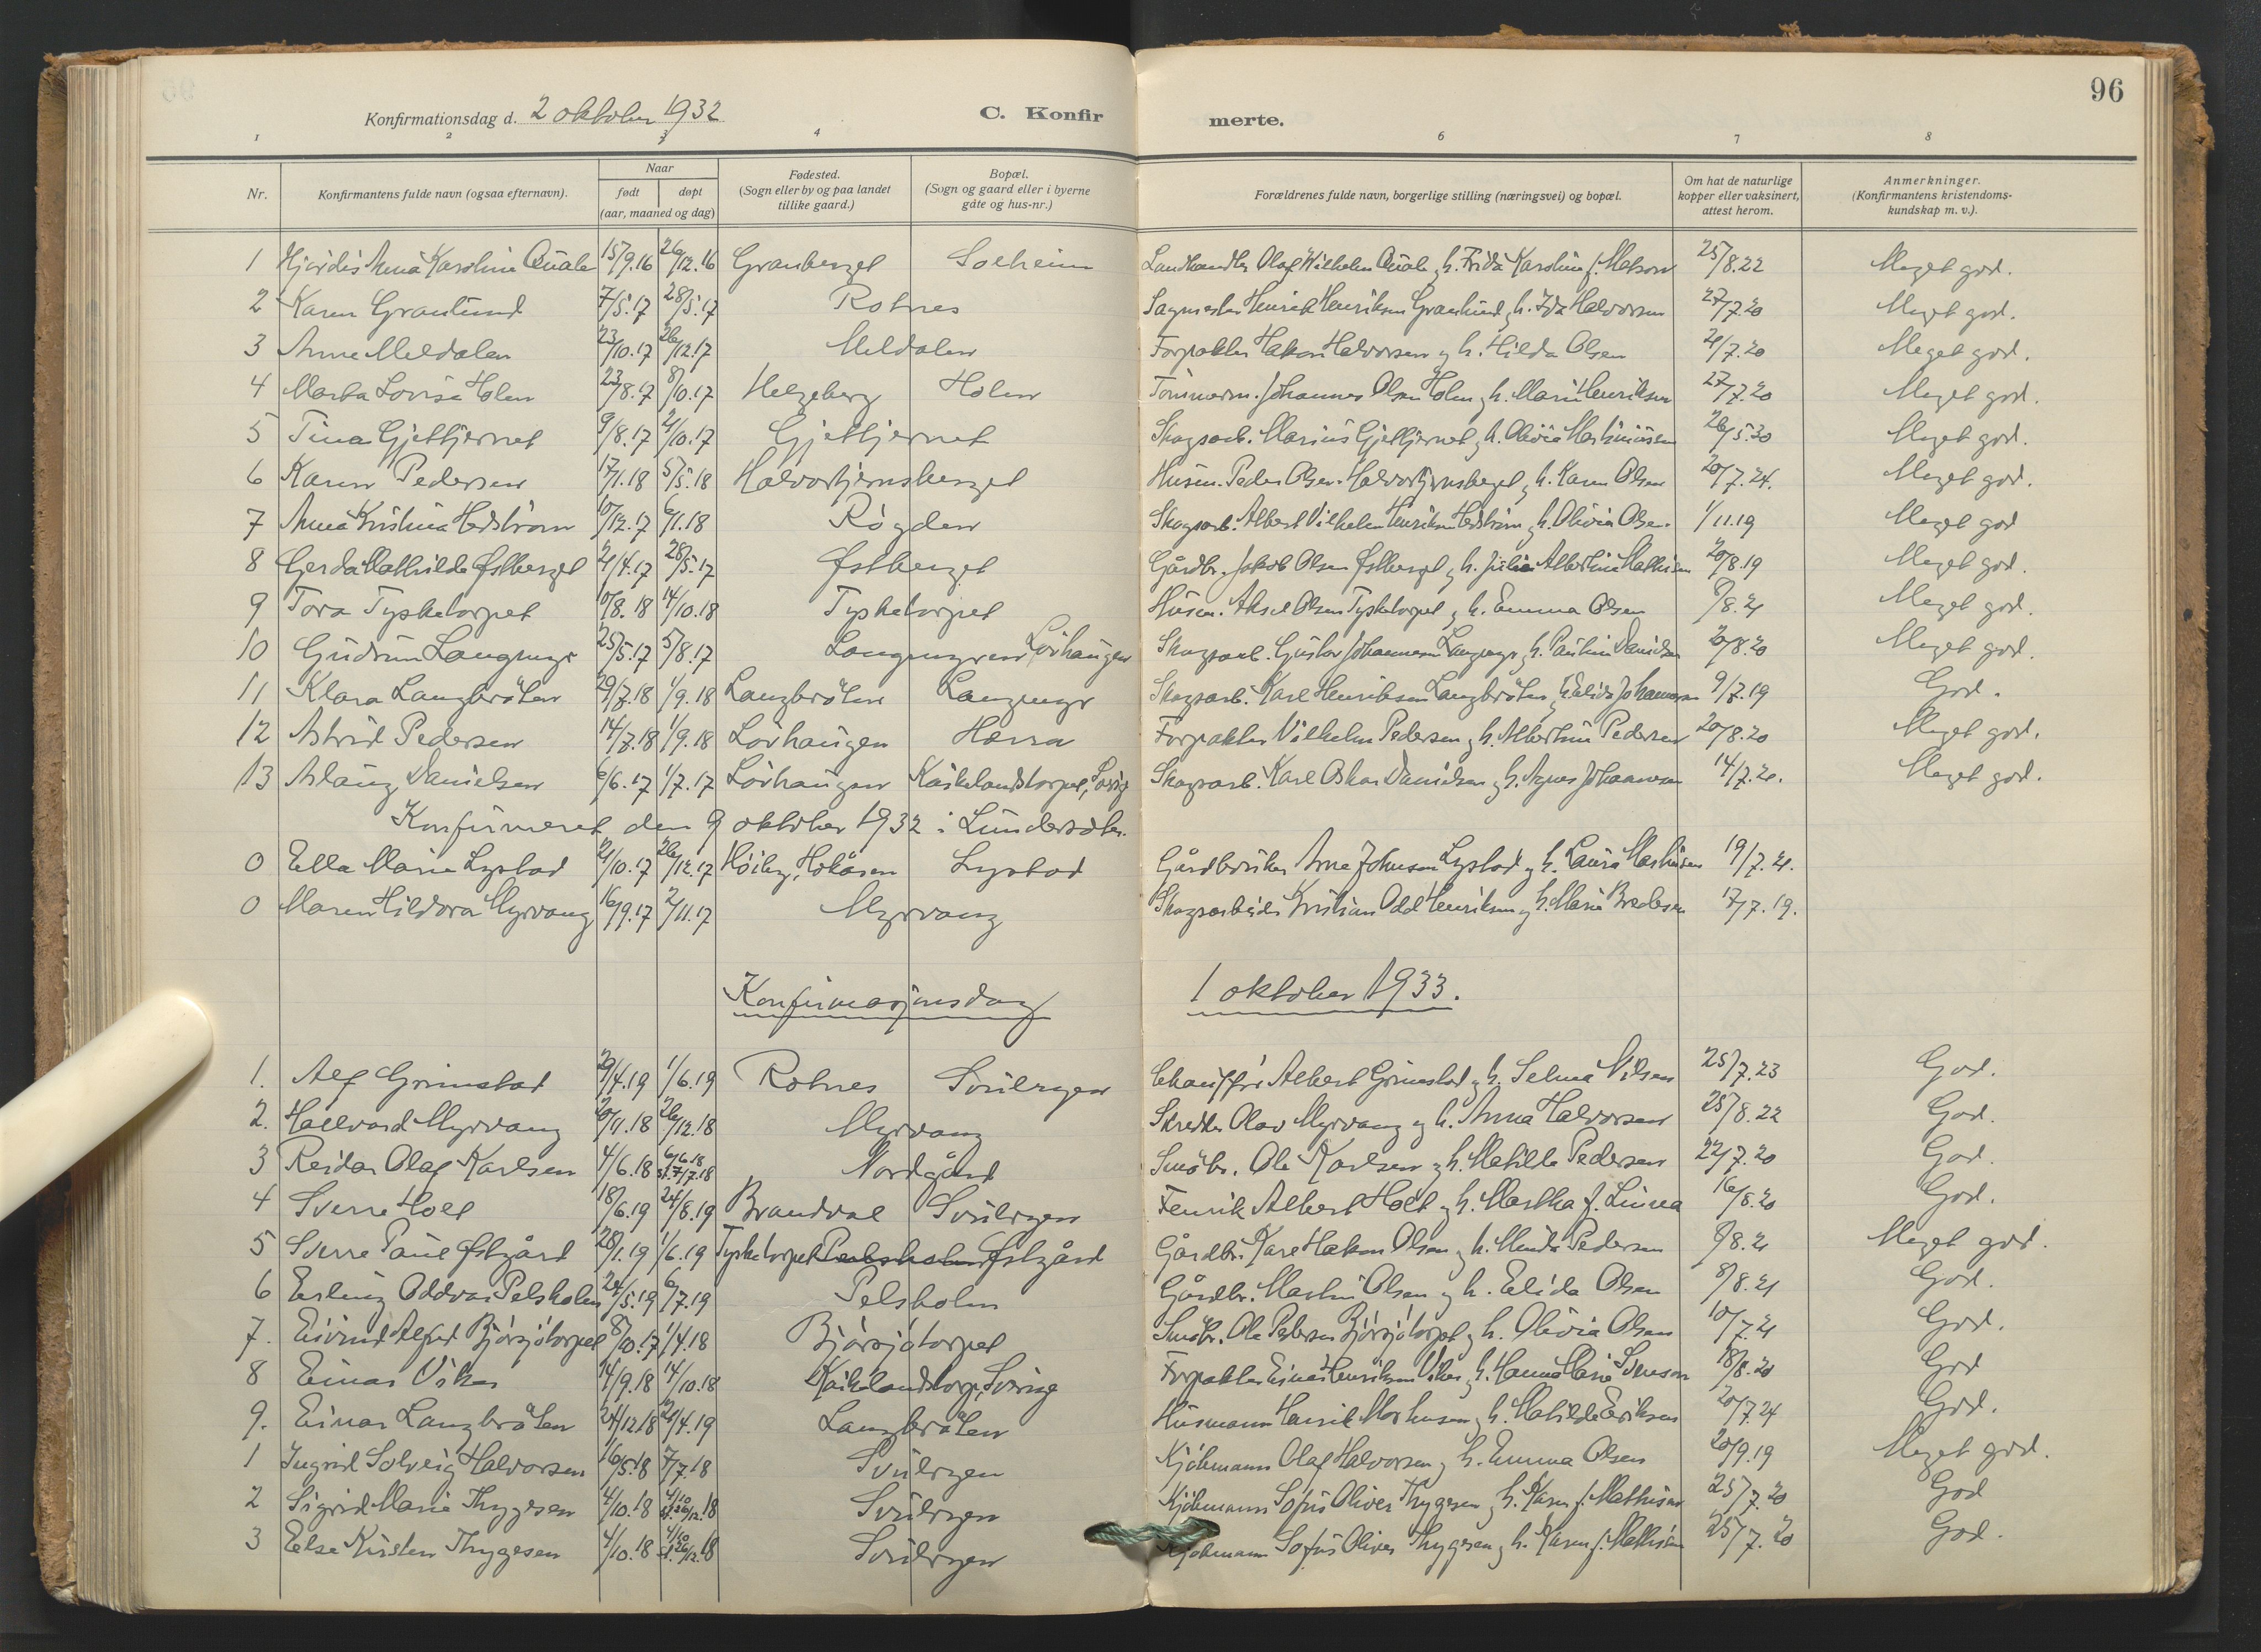 96
Konfirmationsdag d. 2 oktober 1932
C. Konfirmerte.
1 2 3 4 6 7 8
Nr.
Konfirmantens fulde navn (ogsaa efternavn).
Naar
født
døpt
(aar, maaned og dag)
Fødested.
(Sogn eller by og paa landet
tillike gaard.)
Bopæl.
(Sogn og gaard eller i byerne
gåte og hus-nr.)
Forældrenes fulde navn, borgerlige stilling (næringsvei) og bopæl.
Om hat de naturlige
kopper eller vaksinert,
attest herom.
Anmerkninger.
(Konfirmantens kristendoms-
kundskap m. v.).
1 Hjørdis Anna Karoline Quale 15/9.16 26/12.16 Granberget Solheim Landhandler Olaf Wilhelm Quale og h. Frida Karoline f. Matson 25/8.22 Meget god.
2 Karen Granlund 7/5.17 28/5.17 Rotnes Sagmester Henrik Henriksen Granlund og h. Ida Halvorsen 27/7.20 Meget god.
3 Anne Meldalen 23/10.17 26/12.17 Meldalen Forpakter Hakon Halvorsen og h. Hilda Olsen 21/7.20 Meget god.
4 Marta Lovise Holen 23/8.17 8/10.17 Helgeberg Holen Tømmerm. Johannes Olsen Holen og h. Marie Henriksen 27/7.20 Meget god.
5 Tina Gjettjernet 9/8.17 21/10.17 Gjettjernet Skogsarb. Marius Gjettjernet og h. Olivia Martiniussen 26/5.30 Meget god.
6 Karen Pedersen 17/1.18 5/5.18 Halvortjernsberget Husm. Peder Olsen Halvortjernsberget og h. Karen Olsen 20/7.24. Meget god.
7 Anna Kristina Hedstrøm 10/12.17 6/1.18 Røgden Skogsarb. Albert Vilhelm Henriksen Hedstrøm og h. Olivia Olsen 1/11.19 Meget god
8 Gerda Mathilde Østberget 21/4.17 28/5.17 Østberget Gårdbr. Jakob Olsen Østberget og h. Julie Albertine Mathisen 20/8.19 Meget god.
9 Tora Tysketorpet 10/8.18 14/10.18 Tysketorpet Husm. Aksel Olsen Tysketorpet og h. Emma Olsen 8/8.21 Meget god.
10 Gudrun Langmyr 25/5.17 5/8.17 Langmyren Løvhaugen Skogsarb. Gustav Johannesen Langmyr og h. Pauline Danielsen 20/8.20 Meget god.
11 Klara Langbråten 29/7.18 1/9.18 Langbråten Langmyr Skogsarb. Karl Henriksen Langbråten og h. Elida Johannesen 9/7.19 God.
12 Astrid Pedersen 14/7.18 1/9.18 Løvhaugen Hærra Forpakter Vilhelm Pedersen og h. Albertine Pedersen 20/8.20 Meget god.
13 Aslaug Danielsen 6/6.17 1/7.17 Løvhaugen Kaikelandstorpet, Sverig Skogsarb. Karl Oskar Danielsen og h. Agnes Johannesen 14/7.21. Meget god.
Konfirmeret den 9 oktober 1932 i Lundersæter.
0 Ella Marie Lystad 21/10.17 26/12.17 Høiby, Hokåsen Lystad Gårdbruker Arne Johnsen Lystad og h. Laura Mathisen 19/7.21.
0 Maren Hildora Myrvang 16/9.17 2/11.17 Myrvang Skogsarbeider Kristian Odd Henriksen og h. Marie Bredesen 17/7.19.
Konfirmasjonsdag 1 oktober 1933.
1. Alf Grimstad 29/4.19 1/6.19 Rotnes Svullryen Chauffør Albert Grimstad og h. Selma Nilsen 25/7.23 God.
2. Hallvard Myrvang 20/9.18 26/12.18 Myrvang Skredder Olav Myrvang og h. Anna Halvorsen 25/8.22 God.
3 Reidar Olaf Karlsen 4/6.18 6/6.18 st. 7/7.18 Nordgård Småbr. Ole Karlsen og h. Mathilde Pedersen 22/7.20 God.
4 Sverre Holt 18/6.19 24/8.19 Brandval Svullryen Fenrik Albert Holt og h. Martha f. Linna 16/8.20 God.
5 Sverre Paul Østgård 28/1.19 1/6.19 Tysketorpet Østgård Gårdbr. Karl Hakon Olsen og h. Minda Pedersen 8/8.21 Meget god.
6 Erling Oddvar Pelsholen 24/5.19 6/7.19 Pelsholen Gårdbr. Martin Olsen og h. Elida Olsen 8/8.21 God.
7. Eivind Alfred Bjørsjøtorpet 8/10.17 1/4.18 Bjørsjøtorpet Småbr. Ole Pedersen Bjørsjøtorpet og h. Olivia Olsen 10/7.21 God.
8 Einar Viker 14/9.18 14/10.18 Kaikelandstorp, Sverige Forpakter Einar Henriksen Viker og h. Hanna Marie Svenson 18/8.20 God
9. Einar Langbråten 24/12.18 21/4.19 Langbråten Husmann Henrik Mathisen og h. Mathilde Eriksen 20/7.21 God.
1 Ingrid Solveig Halvorsen 16/5.18 7/7.18 Svullryen Kjøbmann Olaf Halvorsen og h. Emma Olsen 20/9.19 Meget god.
2 Sigrid Marie Thygesen 4/10.18 4/10 st. 26/12.18 Svullryen Kjøbmann Sofus Oliver Thygesen og h. Karen f. Mathisen 25/7.20 God
3 Else Kirsten Thygesen 4/10.18 4/10 st. 26/12.18 Svullryen Kjøbmann Sofus Oliver Thygesen og h. Karen f. Mathisen 25/7.20 God.